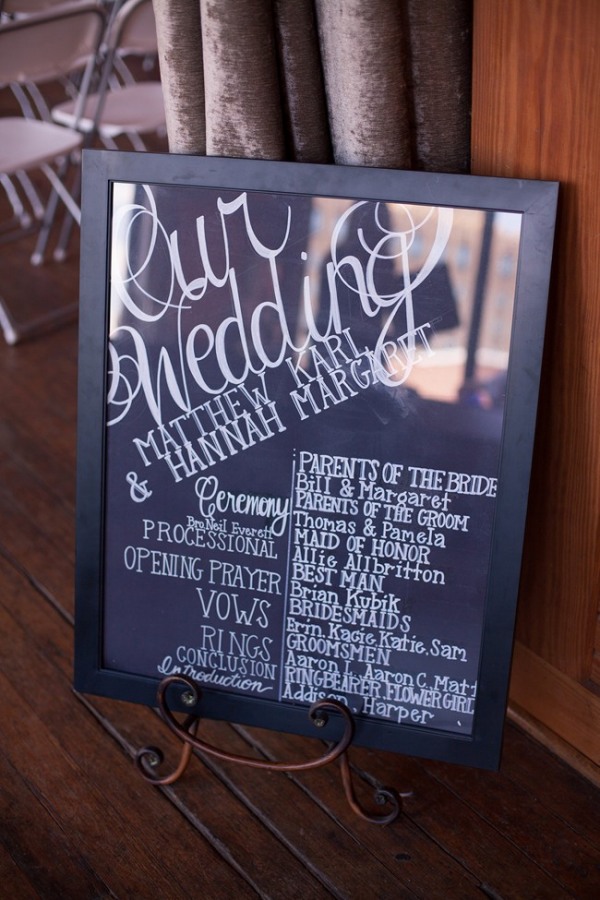 Our
Wedding
MATTHEW KARL
& HANNAH MARGARET
Ceremony
Bro. Neil Everett
PROCESSIONAL
OPENING PRAYER
VOWS
RINGS
CONCLUSION
Introduction
PARENTS OF THE BRIDE
Bill & Margaret
PARENTS OF THE GROOM
Thomas & Pamela
MAID OF HONOR
Allie Allbritton
BEST MAN
Brian Kubik
BRIDESMAIDS
Erin, Kacie, Katie, Sam
GROOMSMEN
Aaron L, Aaron C, Matt
RINGBEARER, FLOWERGIRL
Addison, Harper